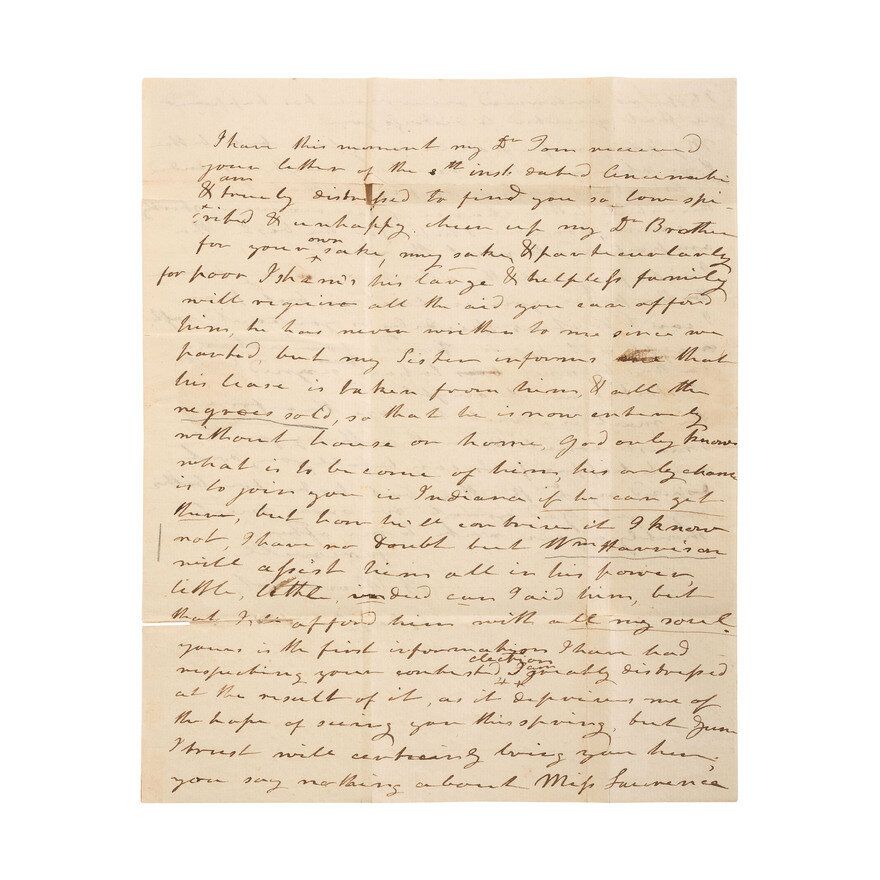 I have this moment my Dr Tom received
your letter of the 8th inst. dated Cincinnati
& am truely distressed to find you so low spi-
rited & unhappy. cheer up my Dr Brother
for your own sake, my sake, & particularly
for poor Isham's his large & helpless family
will require all the aid you can afford
him, he has never written to me since we
parted, but my Sister informs me that
his lease is taken from him, & all the
negroes sold, so that he is now entirely
without house or home, God only knows
what is to become of him, his only chance
is to join you in Indiana if he can get
there, but how he'll contrive it I know
not, I have no Doubt but Wm Harrison
will assist him all in his power,
little, little indeed can I aid him, but
that I'll afford him with all my soul.
yours is the first information I have had
respecting your contested election, I am greatly distressed
at the result of it, as it deprives me of
the hope of seeing you this spring, but June
I trust will certainly bring you here,
you say nothing about Miss Lawrence